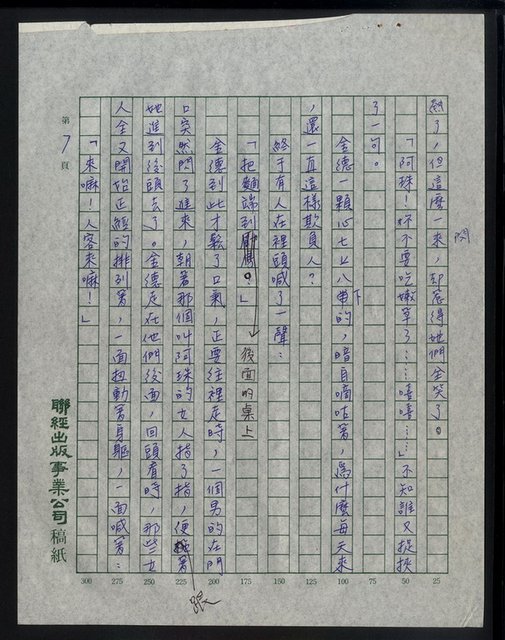 閃
慰了，但這麼一來，却惹得她們全笑了。
「阿珠！妳不要吃嫩筍了……嘻嘻……」不知誰又捉挾
了一句。
金德一顆心七上八下的，暗自嘀咕著，為什麼每天來
，還一直這樣欺負人？
終于有人在裡頭喊了一聲：
「把麵端到後面的桌上。」
金德到此才鬆了口氣，正要往裡走時，一個男的在門
口突然閃了進來，朝著那個叫阿珠的女人指了指，便跟著
她進到後頭去了。金德走在他們後面，回頭看時，那些女
人全又開始正經的排列著，一面扭動著身軀，一面喊著：
「來嘛！人客來嘛！」
第7頁
聯經出版事業公司稿紙
25
50
75
100
125
150
175
200
225
250
275
300